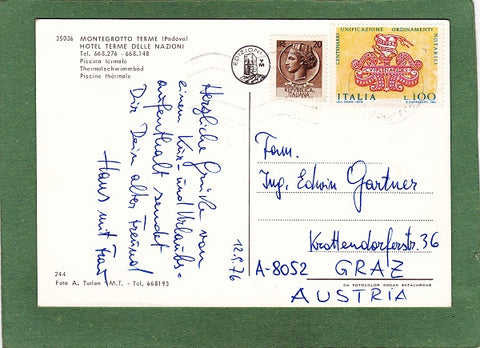 35036 MONTEGROTTO TERME (Padova)
HOTEL TERME DELLE NAZIONI
Tel. 668.276 - 668.148
Piscina termale
Thermalschwimmbad
Piscine thérmale
EDIZIONI
20
ITALIANA
CENTENARIO UNIFICAZIONE ORDINAMENTI NOTARILI
ITALIA L.100
Herzliche Grüße von
einem Kur- und Urlaubs=
aufenthalt sendet
Dir Dein alter Freund
Hans mit Frau
12.5.76
Fam.
Ing. Edwin Gartner
Krottendorferstr. 36
A-8052 GRAZ
AUSTRIA
244
Foto A. Turlon (M.T. - Tel. 668193
DA FOTOCOLOR KODAK EKTACHROME